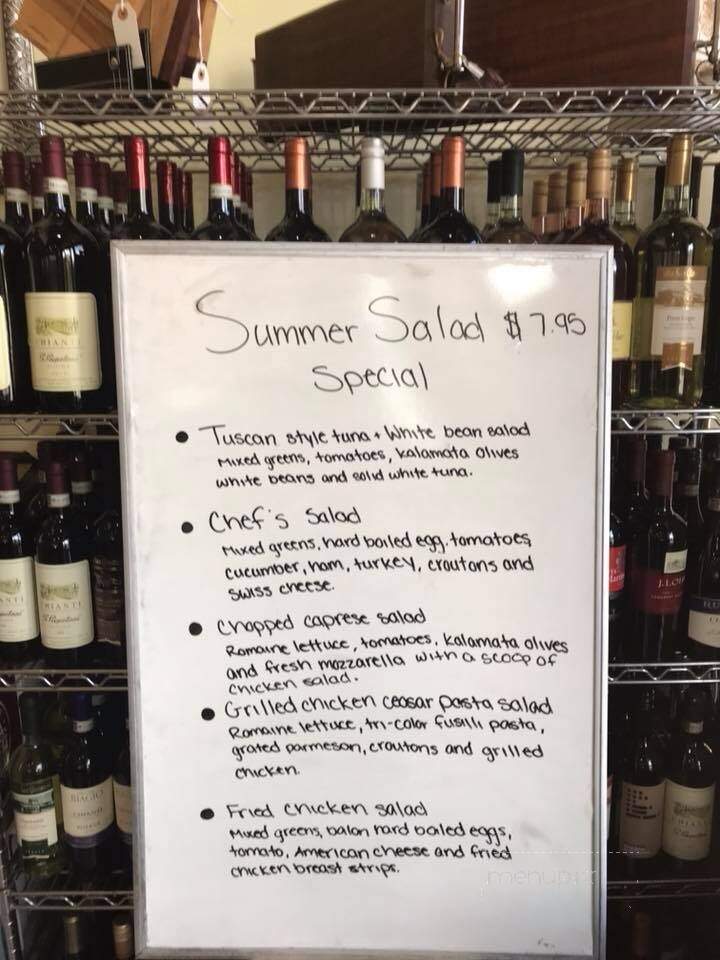 Summer Salad $7.95
Special
• Tuscan style tuna + White bean salad
Mixed greens, tomatoes, kalamata olives
white beans and solid white tuna.
• Chef's Salad
Mixed greens, hard boiled egg, tomatoes,
cucumber, ham, turkey, croutons and
swiss cheese.
• Chopped caprese salad
Romaine lettuce, tomatoes, kalamata olives
and fresh mozzarella with a scoop of
chicken salad.
• Grilled chicken ceasar pasta salad
Romaine lettuce, tri-color fusilli pasta,
grated parmeson, croutons and grilled
chicken.
• Fried chicken salad
Mixed greens, balon hard boiled eggs,
tomato, American cheese and fried
chicken breast strips.
menupix
CHIANTI
CHIANTI
BIAGIO